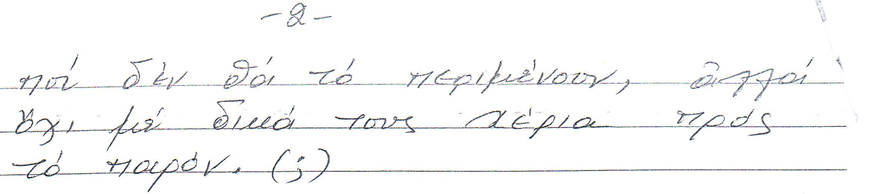 -2-
πού δέν θά τό περιμένουν, ἀλλά
ὄχι μέ δικά τους χέρια πρός
τό παρόν. (;)